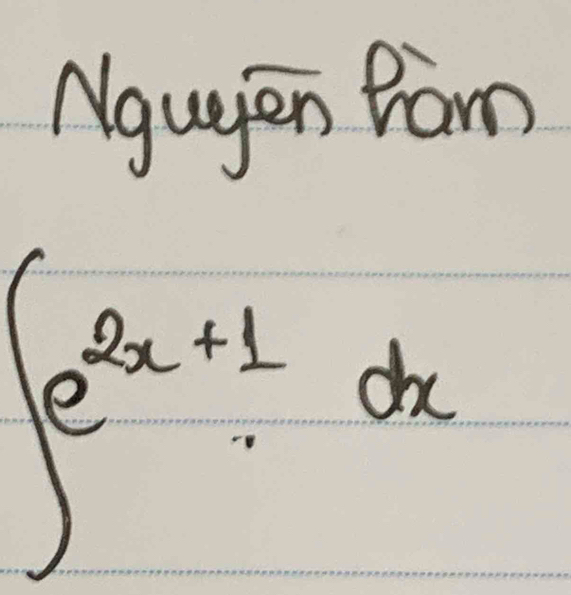 Nguyên hàm
∫e^{2x+1} dx